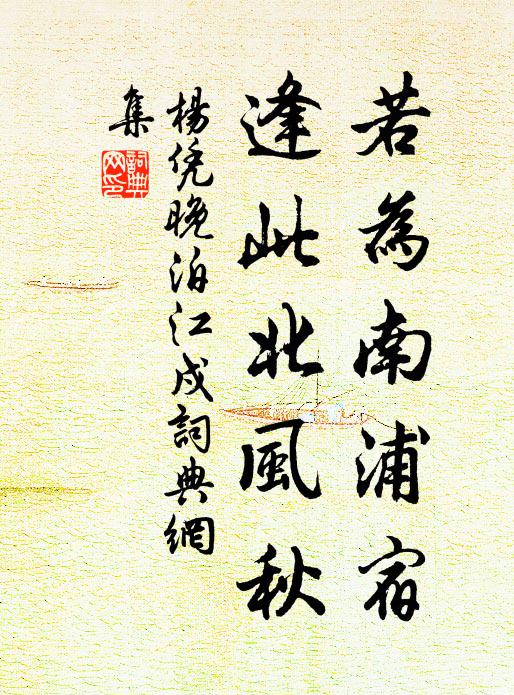 若為南浦宿
逢此北風秋
楊凭晚泊江戍詞典網
集
詞典网印